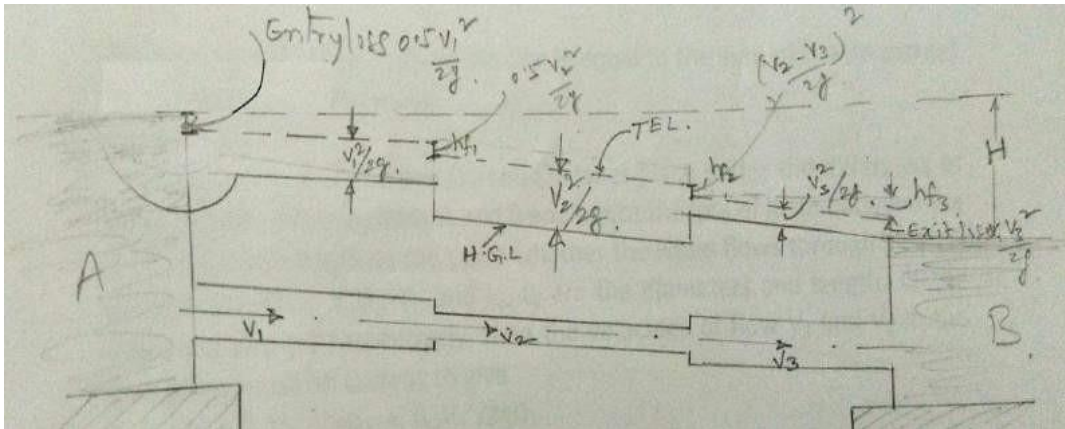 Entry loss 0.5 V₁²/2g.
0.5 V₂²/2g
(V₂-V₃)²/2g
TEL.
H
V₁²/2g.
hf₁
V₂²/2g.
hf₂
V₃²/2g.
hf₃.
Exit loss V₃²/2g
H.G.L
A
B.
V₁
V₂
V₃